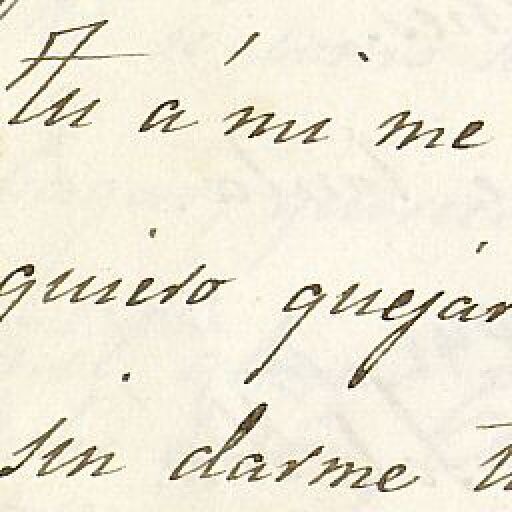 Tu á mi me
quiero quejár
sin darme